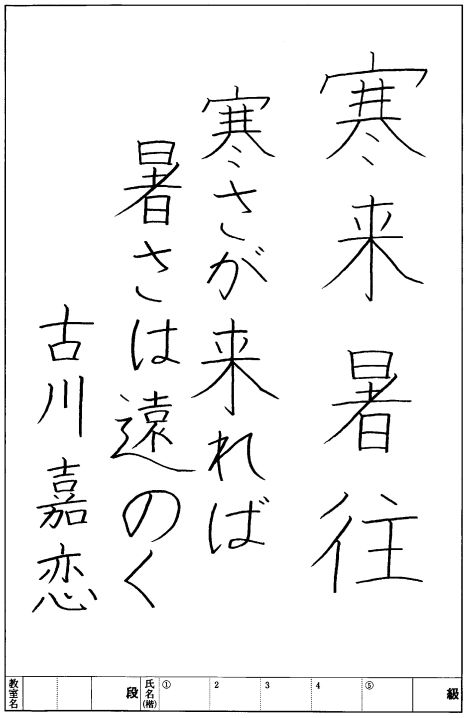 寒来暑往
寒さが来れば
暑さは遠のく
古川嘉恋
教室名 段 氏名(楷) ① 2 3 4 ⑤ 級